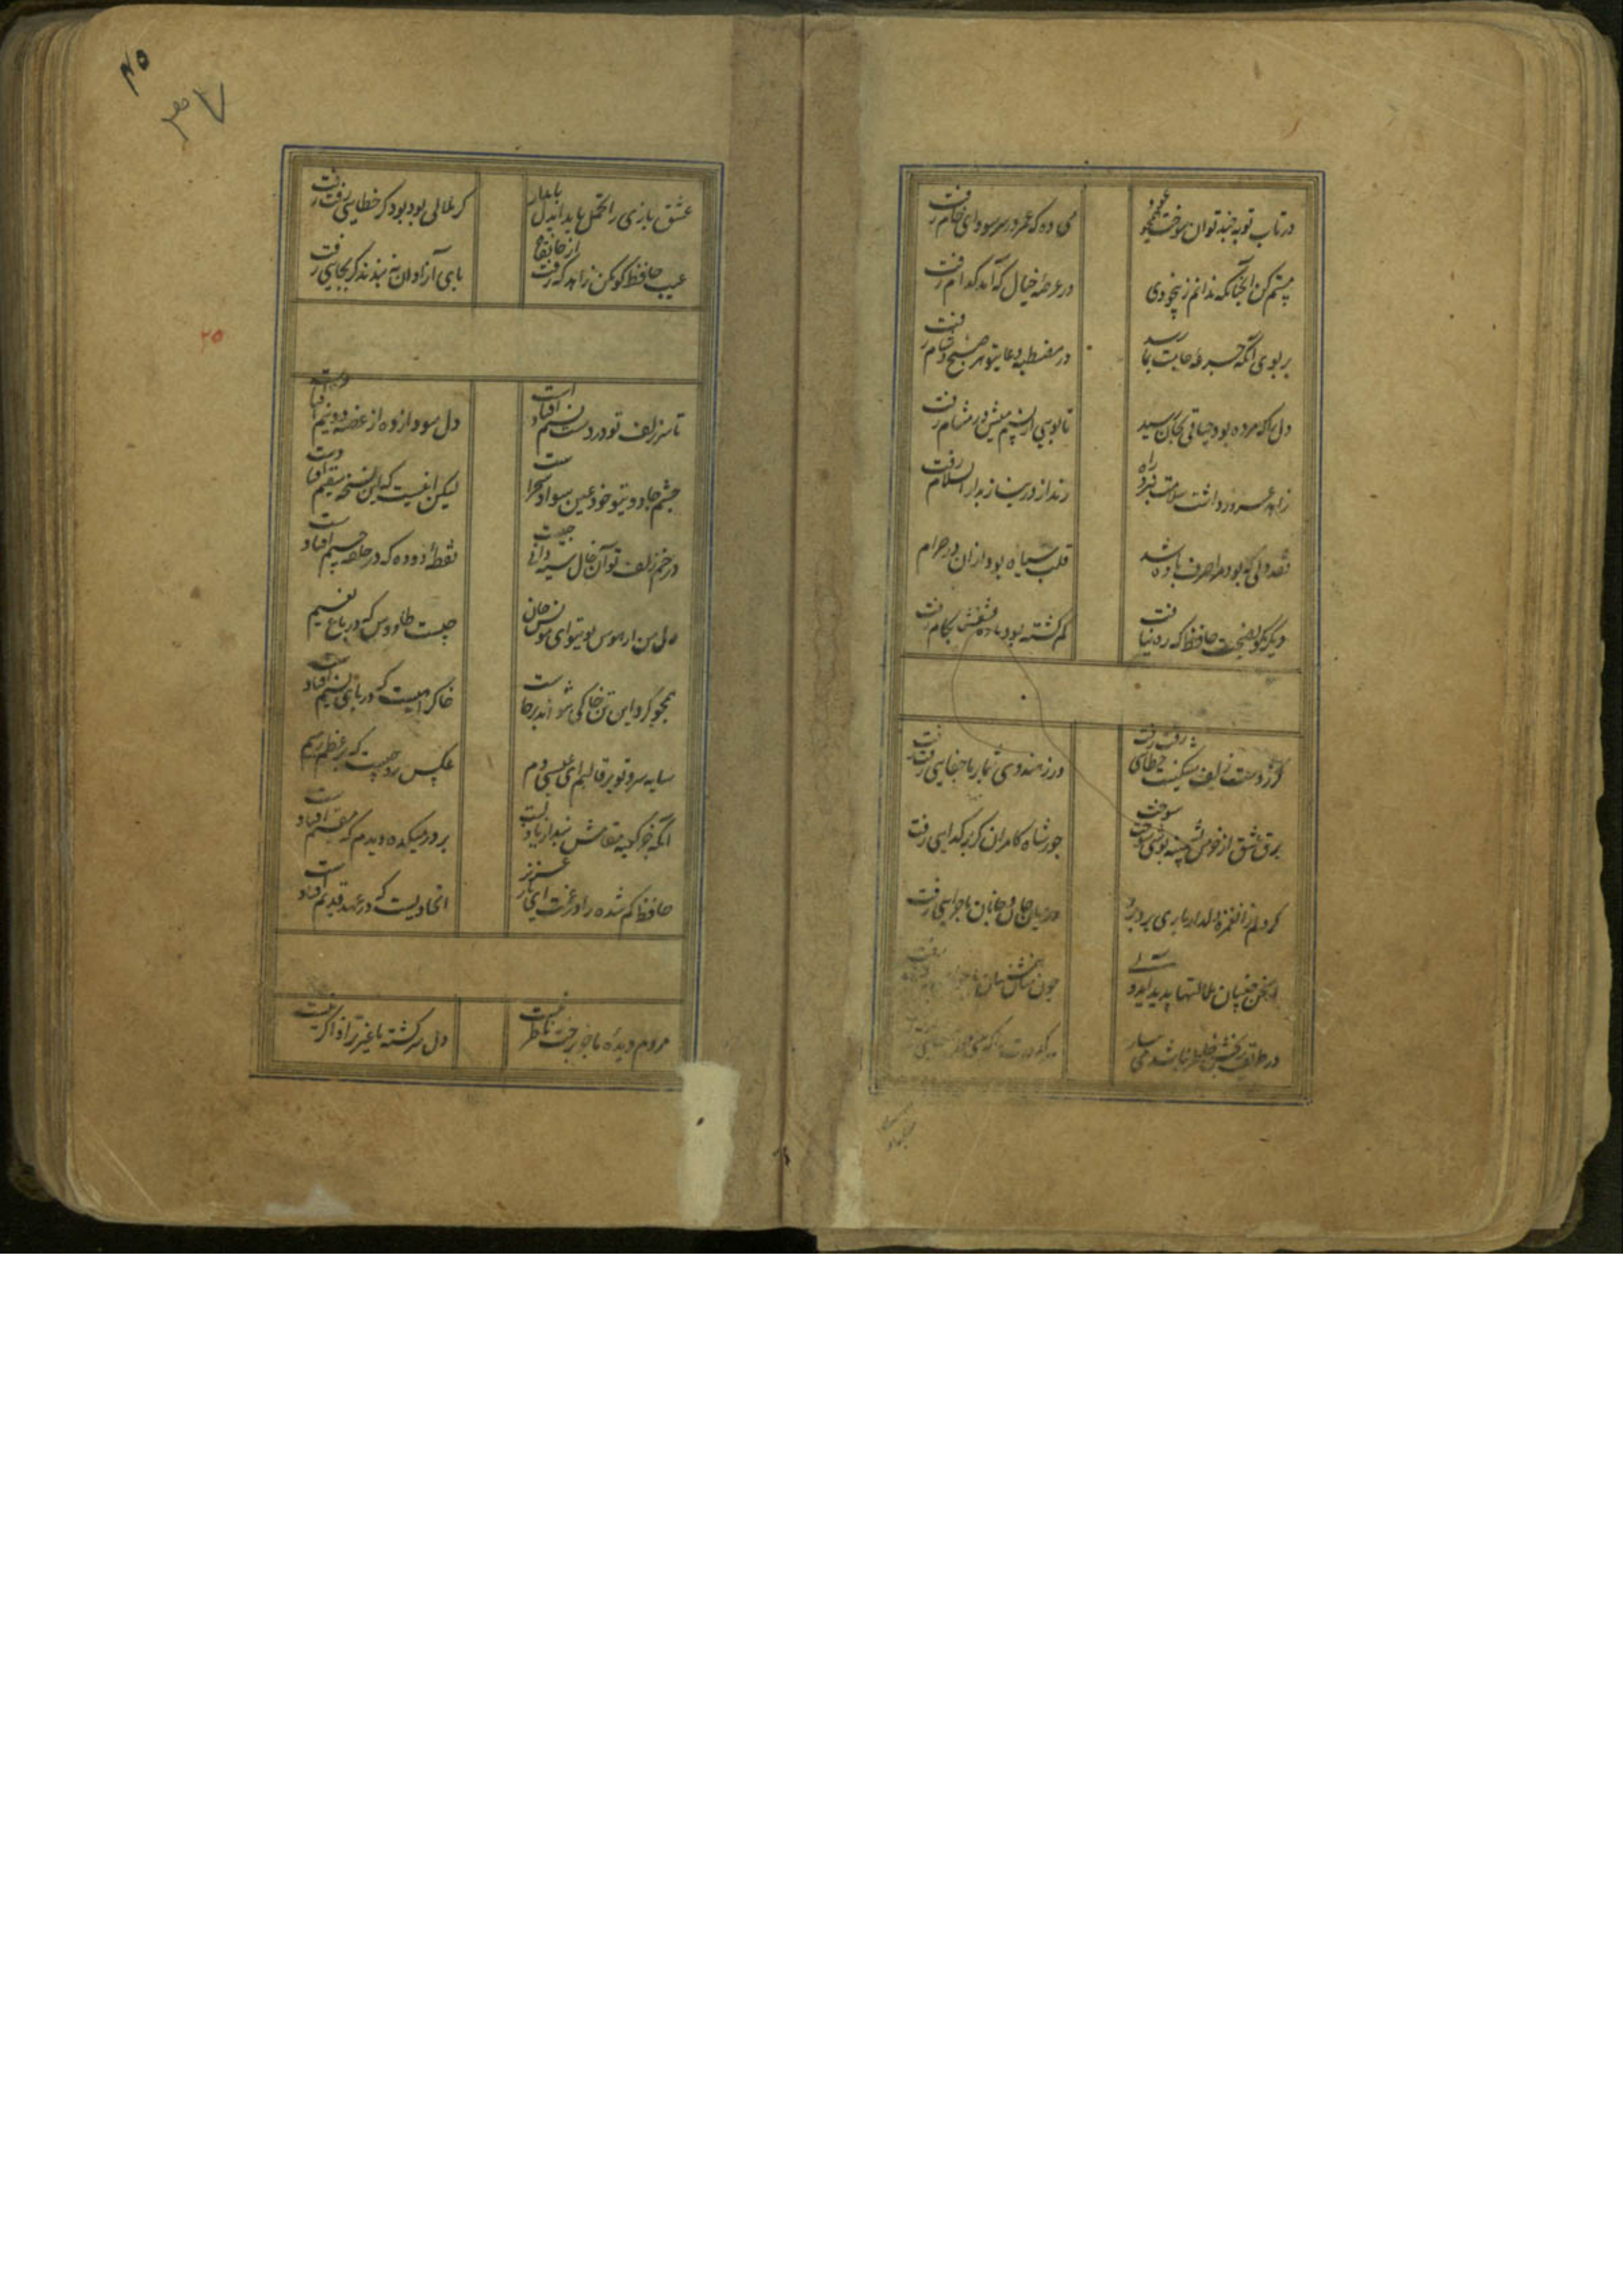 در تاب توبه چند توان سوخت همچو عود
می ده که عمر در سر سودای خام رفت
مستم کن آنچنانکه ندانم ز بیخودی
در عرصه خیال که آمد کدام رفت
بر بوی آنکه جرعه جامت بما رسد
در مصطبه دعای تو هر صبح و شام رفت
دل را که مرده بود حیاتی بجان رسید
تا بویی از نسیم میش در مشام رفت
زاهد غرور داشت سلامت نبرد راه
رند از ره نیاز بدار السلام رفت
نقد دلی که بود مرا صرف باده شد
قلب سیاه بود از آن در حرام رفت
دیگر مگو نصیحت حافظ که ره نیافت
گم گشته بود باده عشقش بکام رفت
گر ز دست زلف مشکینت خطایی رفت رفت
ور ز هندوی شما بر ما جفایی رفت رفت
برق عشق ار خرمن پشمینه پوشی سوخت سوخت
جور شاه کامران گر بر گدایی رفت
گر دلم از غمزه دلدار باری برد برد
در میان جان و جانان ماجرایی رفت
از سخن چینان ملالتها پدید آید ولی
چون
در طریقت رنجش خاطر نباشد می بیار
۴۵
عشق بازی را تحمل باید ای دل پایدار
گر ملالی بود بود گر خطایی رفت رفت
عیب حافظ گو مکن زاهد که رفت از خانقاه
پای آزادان نه بندند گر بجایی رفت رفت
۲۵
تا سر زلف تو در دست نسیم افتاد است
دل سودا زده از غصه دو نیم افتاد است
چشم جادوی تو خود عین سواد سحر است
لیکن این هست که این نسخه سقیم افتاد است
در خم زلف تو آن خال سیه دانی چیست
نقطه دوده که در حلقه جیم افتاد است
دل من از هوس بوی تو ای مونس جان
چیست طاووس که در باغ نعیم
همچو گرد این تن خاکی نتواند برخاست
خاک راهیست که در پای نسیم افتاد است
سایه سرو تو بر قالبم ای عیسی دم
عکس روحیست که بر عظم رمیم
آنکه جز کعبه مقامش نبد از یاد لبت
بر در میکده دیدم که مقیم افتاد است
حافظ گم شده را در غمت ای یار عزیز
اتحادیست که در عهد قدیم افتاد است
مردم دیده ما جز برخت ناظر نیست
دل سرگشته ما غیر ترا ذاکر نیست